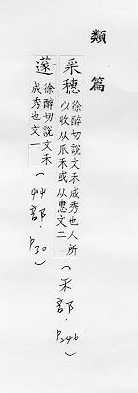 類篇
采穗 徐醉切說文禾成秀也人所
以收从爪禾或从惠文二 (禾部. P.246)
徐醉切說文禾
成秀也文一 (艸部. P.30)